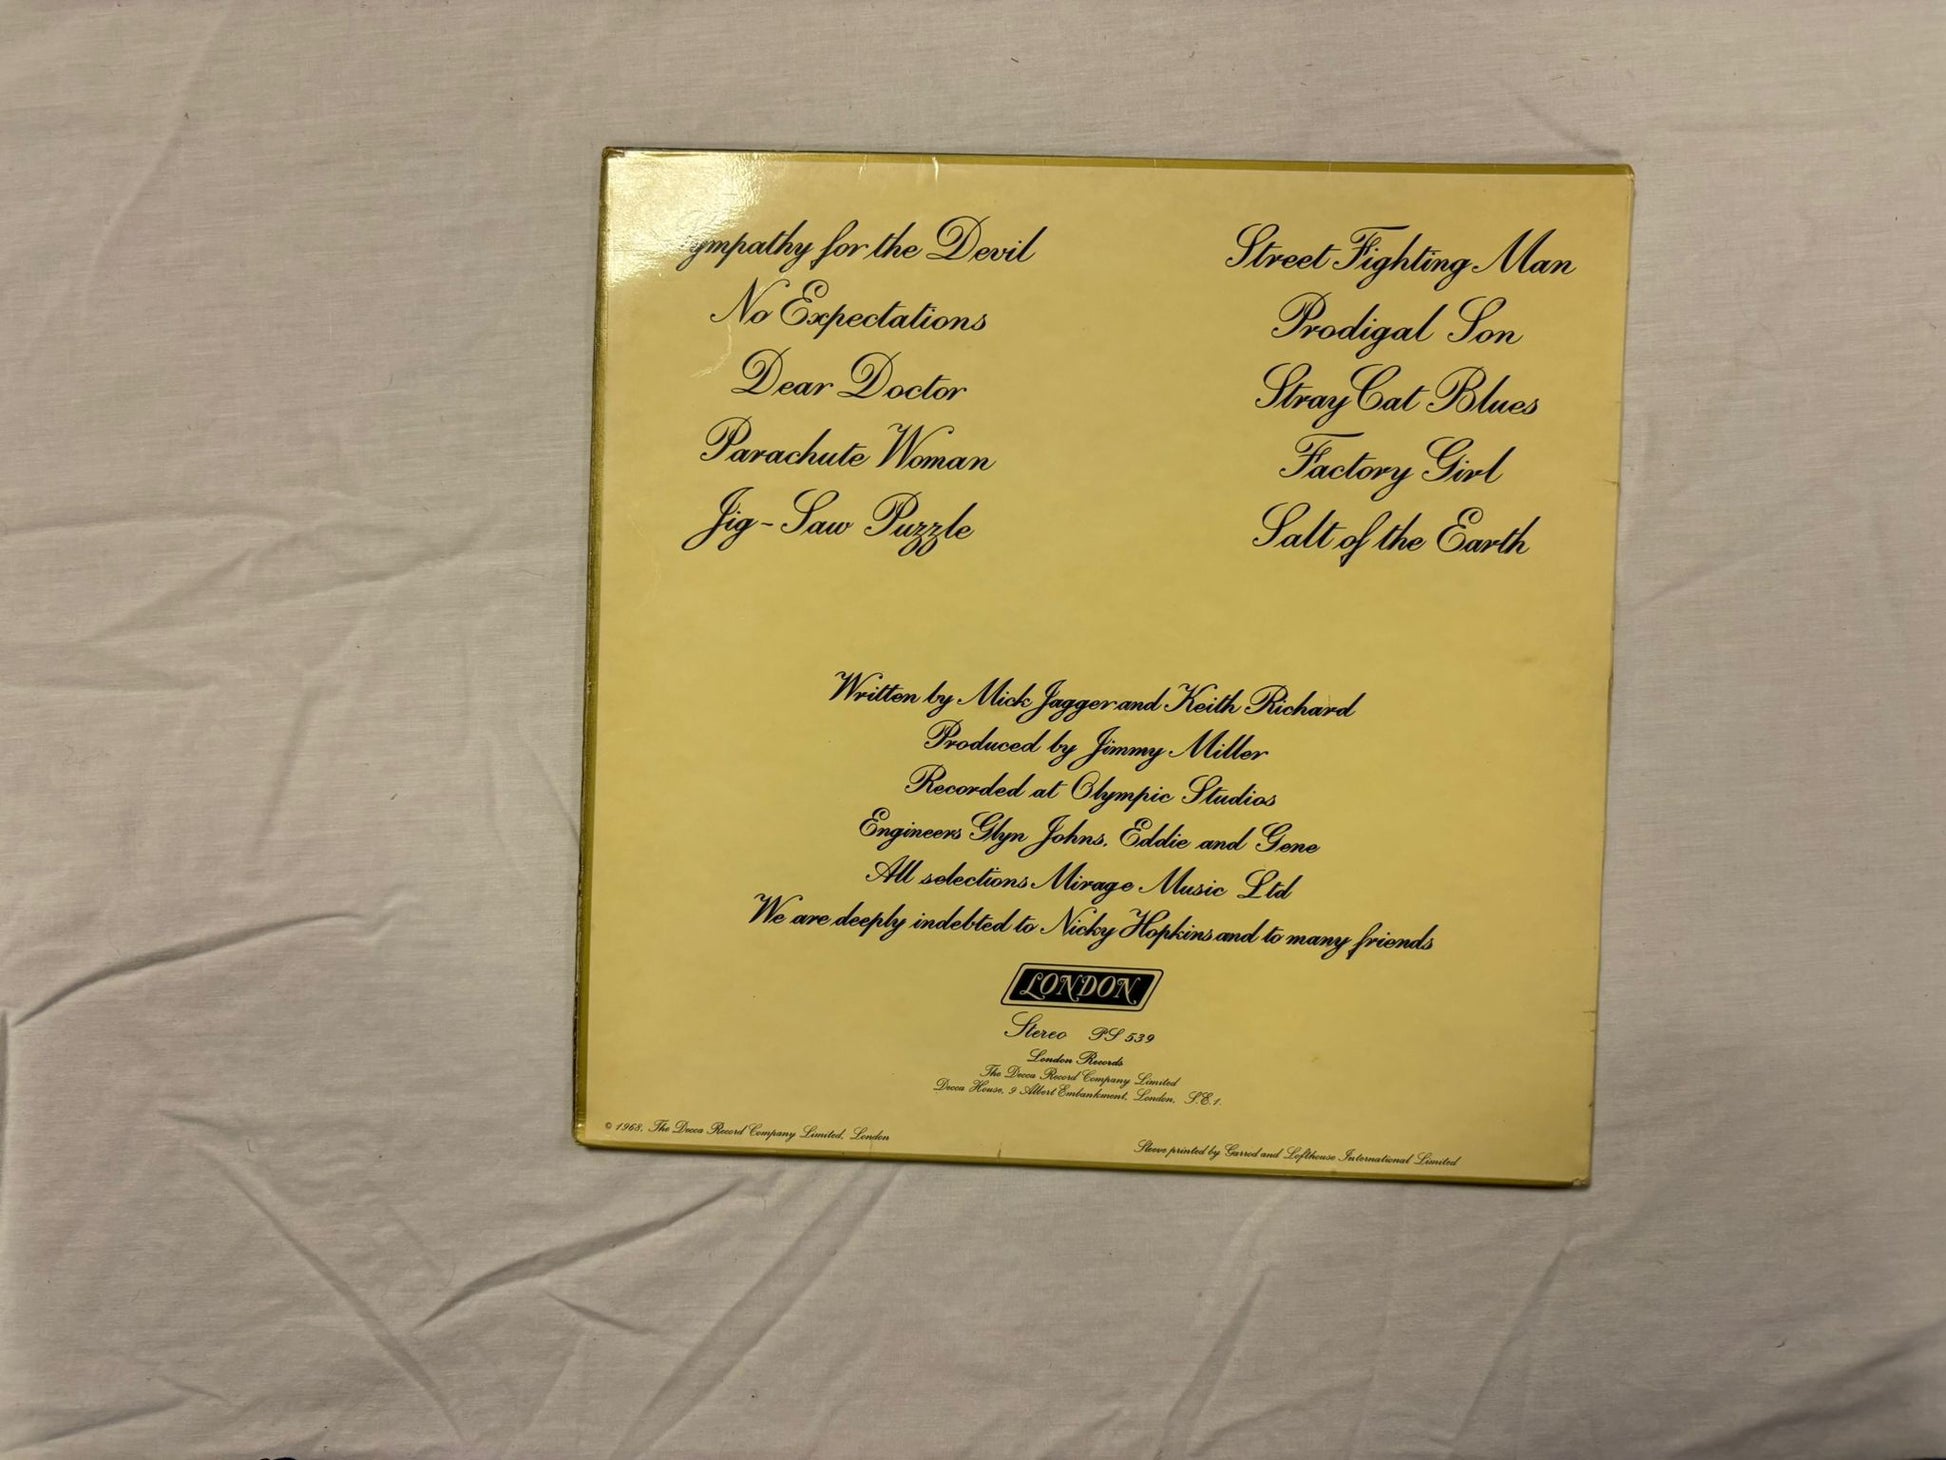 Sympathy for the Devil
No Expectations
Dear Doctor
Parachute Woman
Jig-Saw Puzzle
Street Fighting Man
Prodigal Son
Stray Cat Blues
Factory Girl
Salt of the Earth
Written by Mick Jagger and Keith Richard
Produced by Jimmy Miller
Recorded at Olympic Studios
Engineers Glyn Johns, Eddie and Gene
All selections Mirage Music Ltd
We are deeply indebted to Nicky Hopkins and to many friends
LONDON
Stereo PS 539
London Records
The Decca Record Company Limited
Decca House, 9 Albert Embankment, London, S.E.1.
© 1968, The Decca Record Company Limited, London
Sleeve printed by Garrod and Lofthouse International Limited